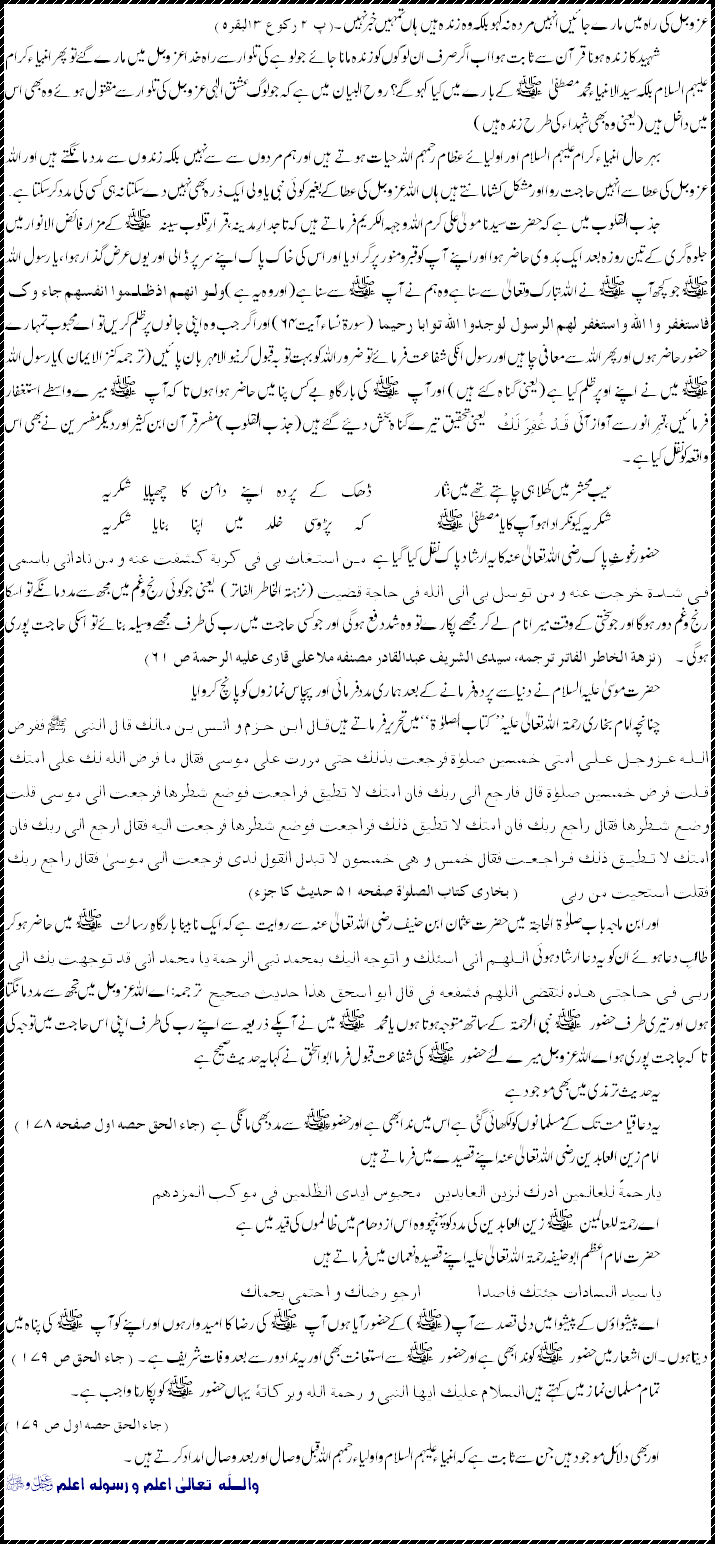 عزوجل کی راہ میں مارے جائیں انہیں مردہ نہ کہو بلکہ وہ زندہ ہیں ہاں تمہیں خبر نہیں۔ (پ ۲ رکوع ۳ البقرہ)
شہید کا زندہ ہونا قرآن سے ثابت ہوا اب اگر صرف ان لوگوں کو زندہ مانا جائے جو لوہے کی تلوار سے راہ خدا عزوجل میں مارے گئے تو پھر انبیاء کرام
علیہم السلام بلکہ سید الانبیاء محمد مصطفیٰ ﷺ کے بارے میں کیا کہو گے؟ روح البیان میں ہے کہ جو لوگ عشق الٰہی عزوجل کی تلوار سے مقتول ہوئے وہ بھی اس
میں داخل ہیں (یعنی وہ بھی شہداء کی طرح زندہ ہیں)
بہرحال انبیاء کرام علیہم السلام اور اولیائے عظام رحمہم اللہ حیات ہوتے ہیں اور ہم مردوں سے سے نہیں بلکہ زندوں سے مدد مانگتے ہیں اور اللہ
عزوجل کی عطا سے انہیں حاجت روا اور مشکل کشا مانتے ہیں ہاں اللہ عزوجل کی عطا کے بغیر کوئی نبی یا ولی ایک ذرہ بھی نہیں دے سکتا نہ ہی کسی کی مدد کر سکتا ہے۔
جذب القلوب میں ہے کہ حضرت سیدنا مولیٰ علی کرم اللہ وجہہ الکریم فرماتے ہیں کہ تاجدار مدینہ، قرار قلوب سینہ ﷺ کے مزار فائض الانوار میں
جلوہ گری کے تین روزہ بعد ایک بدوی حاضر ہوا اور اپنے آپ کو قبر منور پر گرا دیا اور اس کی خاک پاک اپنے سر پر ڈالی اور یوں عرض گذار ہوا، یا رسول اللہ
ﷺ جو کچھ آپ ﷺ نے اللہ تبارک وتعالیٰ سے سنا ہے وہ ہم نے آپ ﷺ سے سنا ہے (اور وہ یہ ہے) ولو انهم اذظلموا انفسهم جاء وک
فاستغفر وا الله واستغفر لهم الرسول لوجدوا الله توابا رحیما (سورۃ نساء آیت ۶۴) اور اگر جب وہ اپنی جانوں پر ظلم کریں تو اے محبوب تمہارے
حضور حاضر ہوں اور پھر اللہ سے معافی چاہیں اور رسول انکی شفاعت فرمائے تو ضرور اللہ کو بہت توبہ قبول کرنیوالا مہربان پائیں (ترجمہ کنز الایمان) یا رسول اللہ
ﷺ میں نے اپنے اوپر ظلم کیا ہے (یعنی گناہ کئے ہیں) اور آپ ﷺ کی بارگاہ بے کس پناہ میں حاضر ہوا ہوں تا کہ آپ ﷺ میرے واسطے استغفار
فرمائیں، قبر انور سے آواز آئی قَدْ غُفِرَ لَكَ یعنی تحقیق تیرے گناہ بخش دیئے گئے ہیں (جذب القلوب) مفسر قرآن ابن کثیر اور دیگر مفسرین نے بھی اس
واقعہ کو نقل کیا ہے۔
عیب محشر میں کھلا ہی چاہتے تھے میں نثار ڈھک کے پردہ اپنے دامن کا چھپایا شکریہ
شکریہ کیونکر ادا ہو آپ کا یا مصطفیٰ ﷺ کہ پڑوسی خلد میں اپنا بنایا شکریہ
حضور غوث پاک رضی اللہ تعالیٰ عنہ کا یہ ارشاد پاک نقل کیا گیا ہے من استغاث بی فی کربة کشفت عنه و من نادانی باسمی
فی شدة خرجت عنه و من توسل بی الی الله فی حاجة قضیت (نزہۃ الخاطر الفاتر) یعنی جو کوئی رنج و غم میں مجھ سے مدد مانگے تو اسکا
رنج و غم دور ہوگا اور جو سختی کے وقت میرا نام لے کر مجھے پکارے تو وہ شدد فع ہوگی اور جو کسی حاجت میں رب کی طرف مجھے وسیلہ بنائے تو اسکی حاجت پوری
ہوگی۔ (نزهة الخاطر الفاتر ترجمه، سیدی الشریف عبدالقادر مصنفه ملا علی قاری علیه الرحمة ص ۶۱)
حضرت موسیٰ علیہ السلام نے دنیا سے پردہ فرمانے کے بعد ہماری مدد فرمائی اور پچاس نمازوں کو پانچ کروایا
چنانچہ امام بخاری رحمۃ اللہ تعالیٰ علیہ ”کتاب الصلوٰۃ“ میں تحریر فرماتے ہیں قال ابن حزم و انس بن مالك قال النبی ﷺ ففرض
الله عزوجل علی امتی خمسین صلوٰة فرجعت بذلك حتی مررت علی موسی فقال ما فرض الله لك علی امتك
قلت فرض خمسین صلوٰة قال فارجع الی ربك فان امتك لا تطیق فراجعت فوضع شطرها فرجعت الی موسی قلت
وضع شطرها فقال راجع ربك فان امتك لا تطیق ذلك فراجعت فوضع شطرها فرجعت الیه فقال ارجع الی ربك فان
امتك لا تطیق ذلك فراجعت فقال خمس و هی خمسون لا تبدل القول لدی فرجعت الی موسیٰ فقال راجع ربك
فقلت استحیت من ربی (بخاری کتاب الصلوٰة صفحه ۵۱ حدیث کا جزء)
اور ابن ماجہ باب صلوٰۃ الحاجۃ میں حضرت عثمان ابن حنیف رضی اللہ تعالیٰ عنہ سے روایت ہے کہ ایک نابینا بارگاہ رسالت ﷺ میں حاضر ہو کر
طالب دعا ہوئے ان کو یہ دعا ارشاد ہوئی اللهم انی اسئلك و اتوجه الیك بمحمد نبی الرحمة یا محمد انی قد توجهت بك الی
ربی فی حاجتی هذه لتقضی اللهم فشفعه فی قال ابو اسحق هذا حدیث صحیح ترجمہ: اے اللہ عزوجل میں تجھ سے مدد مانگتا
ہوں اور تیری طرف حضور ﷺ نبی الرحمۃ کے ساتھ متوجہ ہوتا ہوں یا محمد ﷺ میں نے آپکے ذریعہ سے اپنے رب کی طرف اپنی اس حاجت میں توجہ کی
تا کہ حاجت پوری ہو اے اللہ عزوجل میرے لئے حضور ﷺ کی شفاعت قبول فرما ابو اسحٰق نے کہا یہ حدیث صحیح ہے
یہ حدیث ترمذی میں بھی موجود ہے
یہ دعا قیامت تک کے مسلمانوں کو سکھائی گئی ہے اس میں ندا بھی ہے اور حضور ﷺ سے مدد بھی مانگی ہے (جاء الحق حصه اول صفحه ۱۷۸)
امام زین العابدین رضی اللہ تعالیٰ عنہ اپنے قصیدے میں فرماتے ہیں
یارحمةً للعالمین ادرك لزین العابدین محبوس ایدی الظٰلمین فی موكب المزدهم
اے رحمۃ للعالمین ﷺ زین العابدین کی مدد کو پہنچو وہ اس ازدھام میں ظالموں کی قید میں ہے
حضرت امام اعظم ابو حنیفہ رحمۃ اللہ تعالیٰ علیہ اپنے قصیدہ نعمان میں فرماتے ہیں
یا سید السادات جئتك قاصدا ارجو رضاك و احتمی بحماك
اے پیشواؤں کے پیشوا میں دلی قصد سے آپ (ﷺ) کے حضور آیا ہوں آپ ﷺ کی رضا کا امیدوار ہوں اور اپنے کو آپ ﷺ کی پناہ میں
دیتا ہوں۔ ان اشعار میں حضور ﷺ کو ندا بھی ہے اور حضور ﷺ سے استعانت بھی اور یہ ندا دور سے بعد وفات شریف ہے۔ (جاء الحق ص ۱۷۹)
تمام مسلمان نماز میں کہتے ہیں السلام علیك ایها النبی و رحمة الله وبرکاتهٗ یہاں حضور ﷺ کو پکارنا واجب ہے۔
(جاء الحق حصه اول ص ۱۷۹)
اور بھی دلائل موجود ہیں جن سے ثابت ہے کہ انبیاء علیہم السلام و اولیاء رحمہم اللہ قبل وصال اور بعد وصال امداد کرتے ہیں۔
والله تعالیٰ اعلم و رسوله اعلم عزوجل و ﷺ